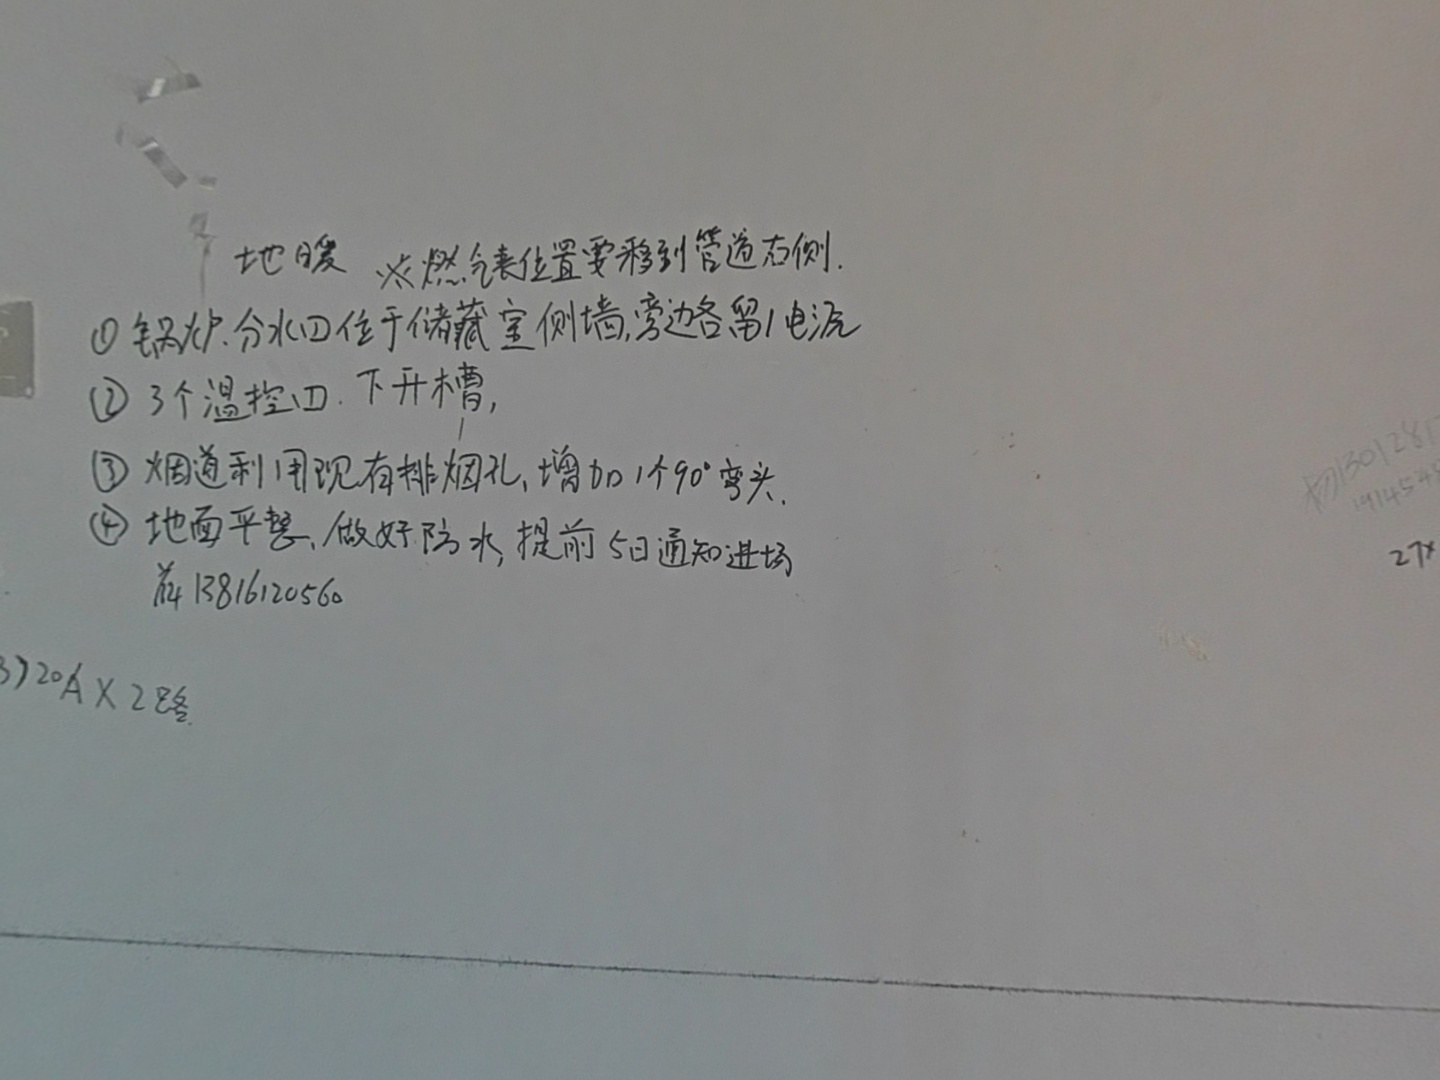 地暖 ※燃气表位置要移到管道右侧.
① 锅炉.分水口位于储藏室侧墙,旁边各留1电源
② 3个温控口.下开槽,
③ 烟道利用现有排烟孔,增加1个90°弯头.
④ 地面平整、做好防水,提前5日通知进场
13816120560
3)20A×2路
27×